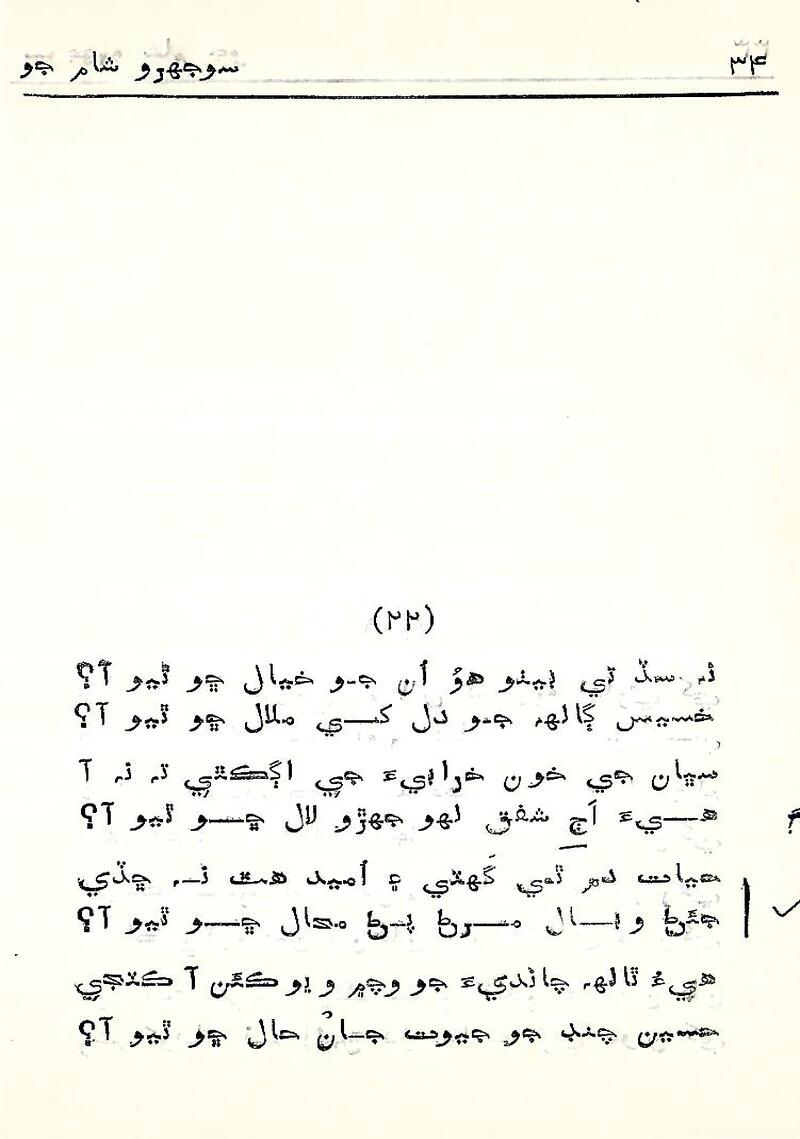 ۳۴
سوجھرو شام جو
(۲۲)
نہ سڏ تي ٻيٺو هوُ اُن جو خيال ڇو ٿيو آ؟
خسيس ڳالھہ جو دل کي ملال ڇو ٿيو آ؟
سڀان جي خون خرابيءَ جي اڳڪٿي تہ نہ آ
هيءَ اَڄ شفق لھو جھڙو لال ڇو ٿيو آ؟
حيات دم ٿي گَھٽي ۽ اُميد هٿ نہ ڇڏي
جيئڻ وبال مرڻ پڻ محال ڇو ٿيو آ؟
هيءُ ٿالھہ چانديءَ جو وچ۾ ويو ڪيئن آ ڪٽجي
حسين چنڊ جو جيوت جان حال ڇو ٿيو آ؟